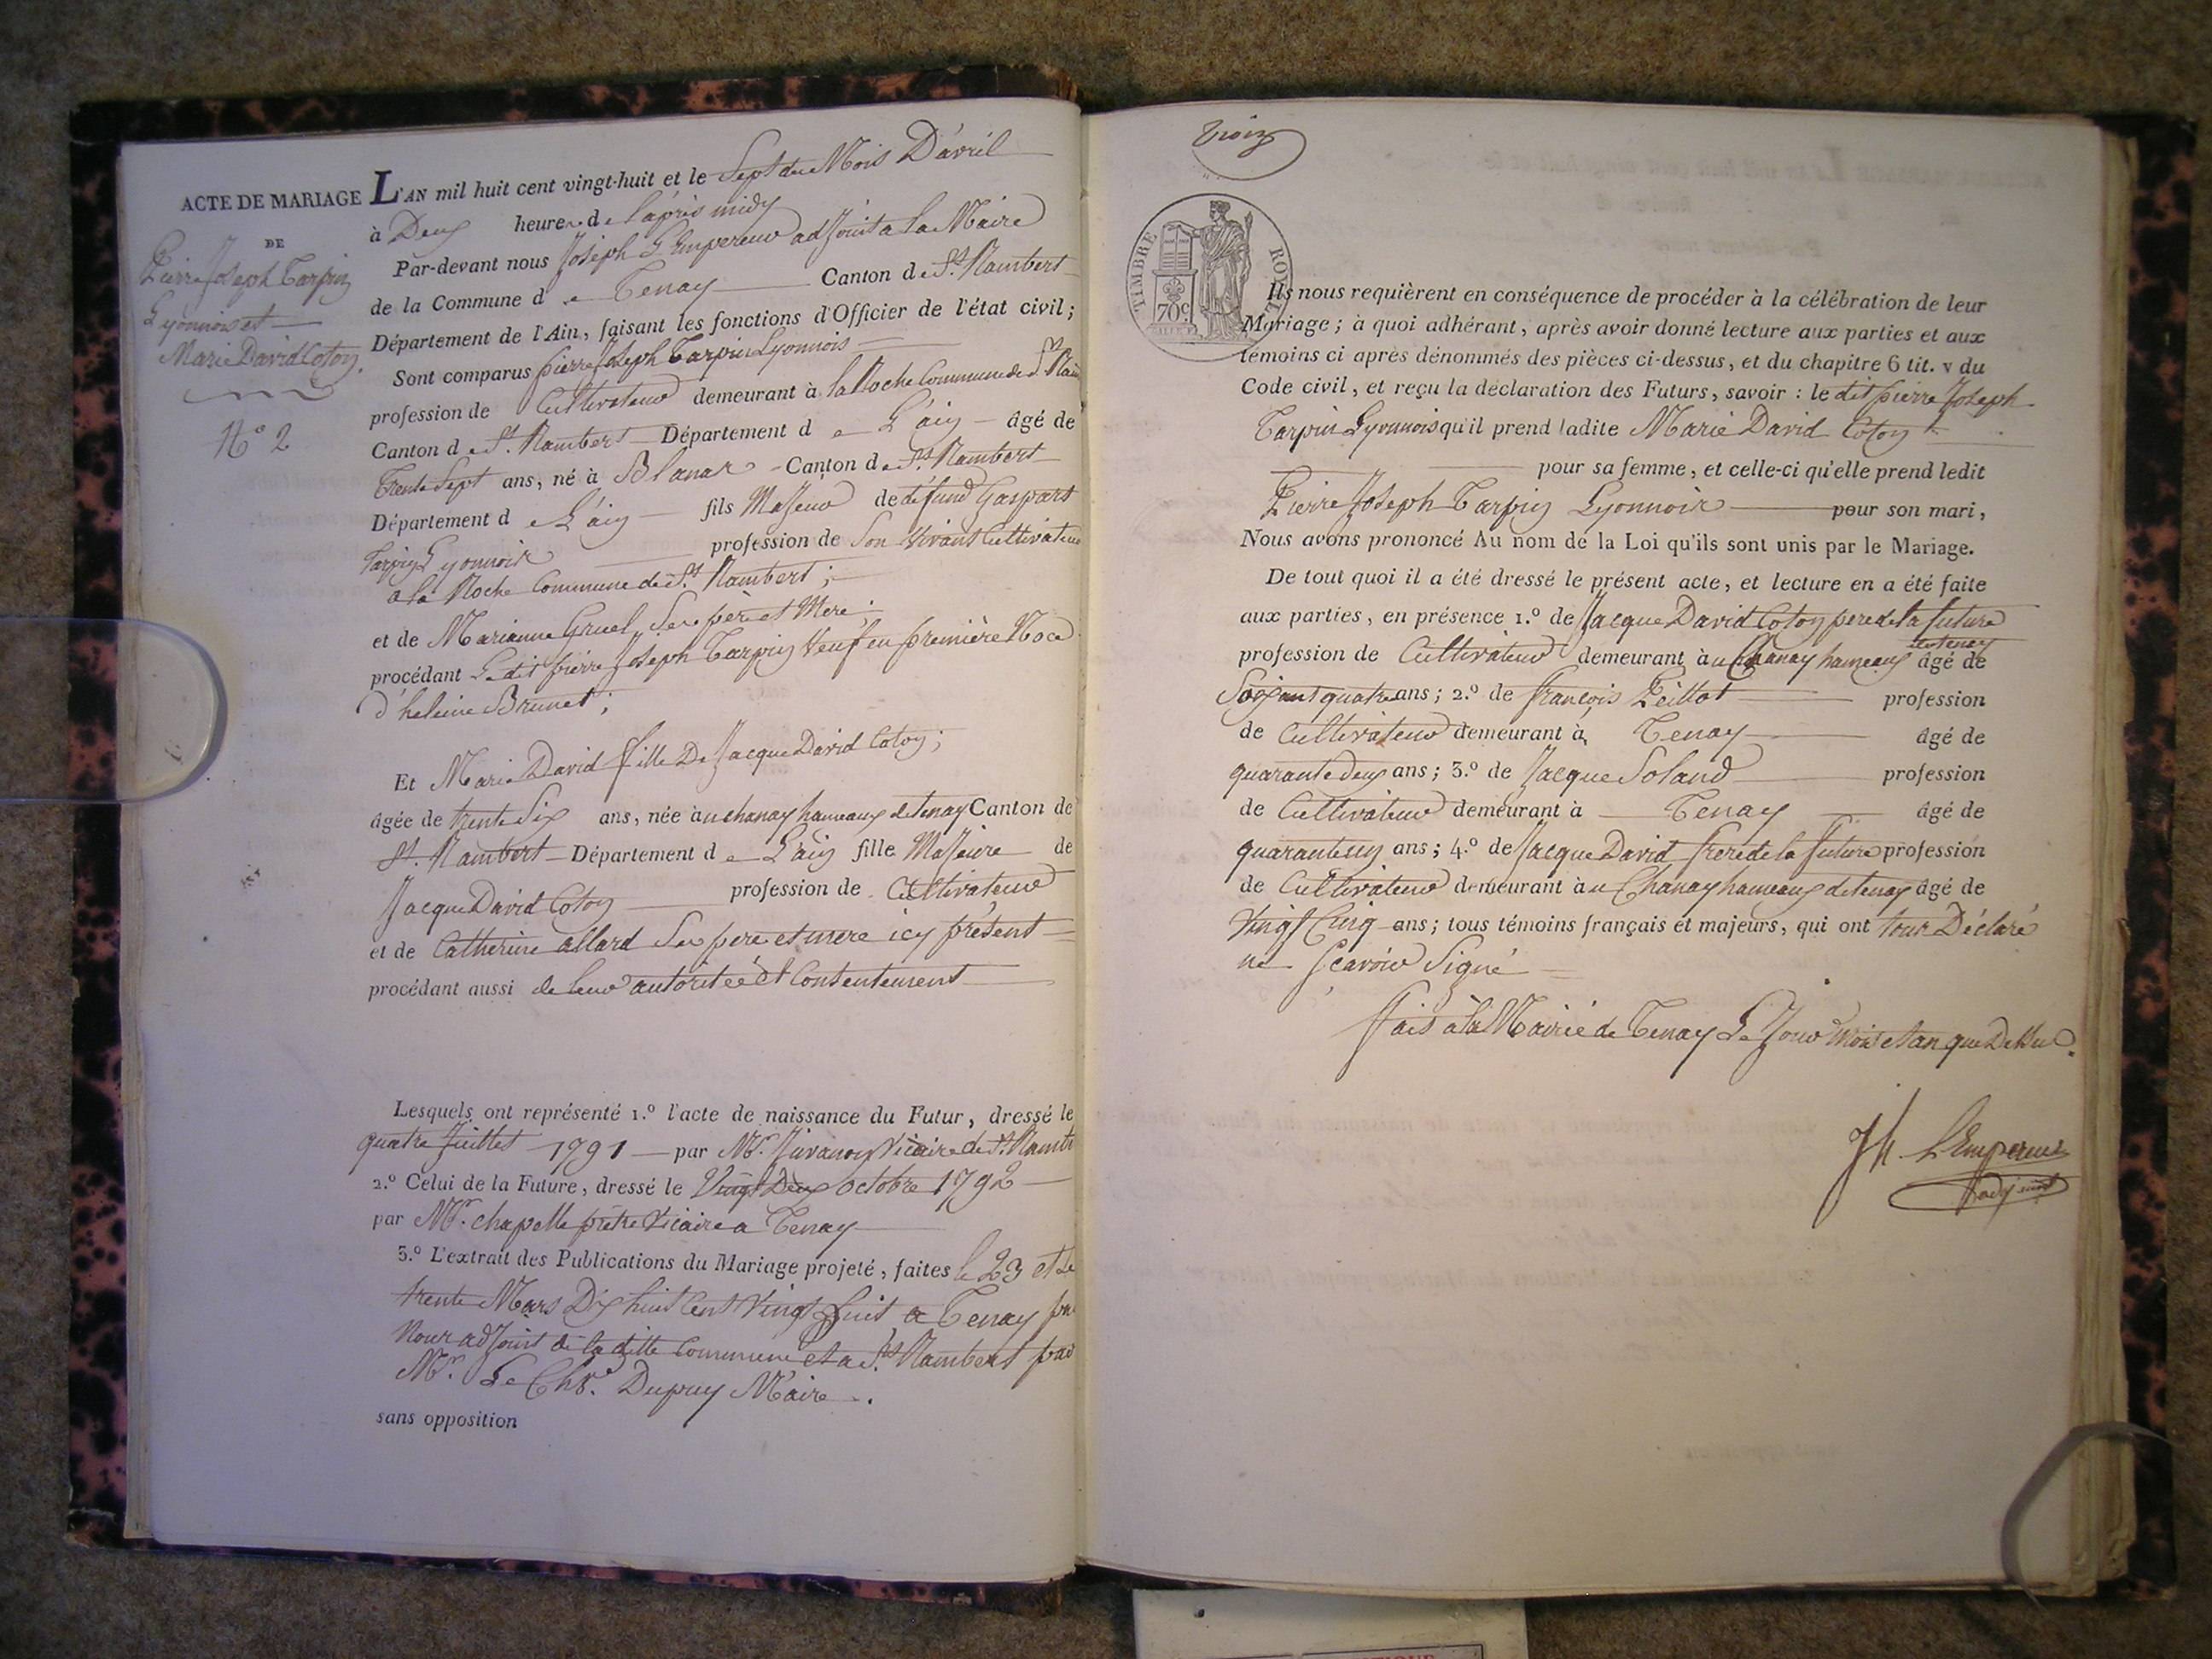 ACTE DE MARIAGE
DE
Pierre Joseph Tarpin
Lyonnois et
Marie David Coton.
N° 2
L'AN mil huit cent vingt-huit et le Sept du Mois D'avril
à Deux heures de l'après midy
Par-devant nous Joseph L'Empereur adjoint a la Maire
de la Commune de Tenay Canton de St. Rambert
Département de l'Ain, faisant les fonctions d'Officier de l'état civil;
Sont comparus pierre Joseph Tarpin Lyonnois
profession de Cultivateur demeurant à la Roche Commune de St. Ram
Canton de St. Rambert Département de L'ain âgé de
Trente Sept ans, né à Blanaz Canton de St. Rambert
Département de L'ain fils Majeur de défund Gaspart
Tarpin Lyonnois profession de Son Vivant Cultivateur
a la Roche Commune de St. Rambert;
et de Marianne Gruel Ses père et Mere;
procédant Ledit pierre Joseph Tarpin Veuf en première Noce
d'heleine Brunet;
Et Marie David fille De Jacque David Coton;
âgée de trente Six ans, née au chanay hameaux de tenay Canton de
St. Rambert Département de L'ain fille Majeure de
Jacque David Coton profession de Cultivateur
et de Catherine allard Ses pere et mere icy présent
procédant aussi de leur autoritée et Contentement
Lesquels ont représenté 1.° l'acte de naissance du Futur, dressé le
quatre Juillet 1791 par Mr. Vicaire de St. Rambt
2.° Celui de la Future, dressé le Vingt Deux octobre 1792
par Mr. chapelle prêtre Vicaire a Tenay
3.° L'extrait des Publications du Mariage projeté, faites le 23 et le
trente Mars Dix huit Cent Vingt huit a Tenay par
Nous adjoint de la ditte Commune et a St. Rambert par
Mr. Le Chr. Dupuy Maire.
sans opposition
trois
TIMBRE ROYAL
70c.
Ils nous requièrent en conséquence de procéder à la célébration de leur
Mariage; à quoi adhérant, après avoir donné lecture aux parties et aux
témoins ci après dénommés des pièces ci-dessus, et du chapitre 6 tit. v du
Code civil, et reçu la déclaration des Futurs, savoir : le dit pierre Joseph
Tarpin Lyonnois qu'il prend ladite Marie David Coton
pour sa femme, et celle-ci qu'elle prend ledit
Pierre Joseph Tarpin Lyonnois pour son mari,
Nous avons prononcé Au nom de la Loi qu'ils sont unis par le Mariage.
De tout quoi il a été dressé le présent acte, et lecture en a été faite
aux parties, en présence 1.° de Jacque David Coton pere de la future
profession de Cultivateur demeurant àu Chanay hameaux de tenay âgé de
Soixant quatre ans; 2.° de françois Peillot profession
de Cultivateur demeurant à Tenay âgé de
quarante deux ans; 3.° de Jacque Soland profession
de Cultivateur demeurant à Tenay âgé de
quarante un ans; 4.° de Jacque David frere de la future profession
de Cultivateur demeurant àu Chanay hameaux de tenay âgé de
Vingt Cinq ans; tous témoins français et majeurs, qui ont tous Déclaré
ne Scavoir Signé
fais à la Mairie de Tenay Le Jour mois et an que Dessus.
Jh. L'Empereur
adjoint